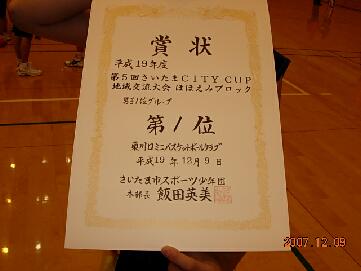 賞状
平成19年度
第5回さいたまCITY CUP
地域交流大会 ほほえみブロック
男子1位グループ
第1位
東川口ミニバスケットボールクラブ
平成19年12月9日
さいたま市スポーツ少年団
本部長 飯田英美
2007.12.09